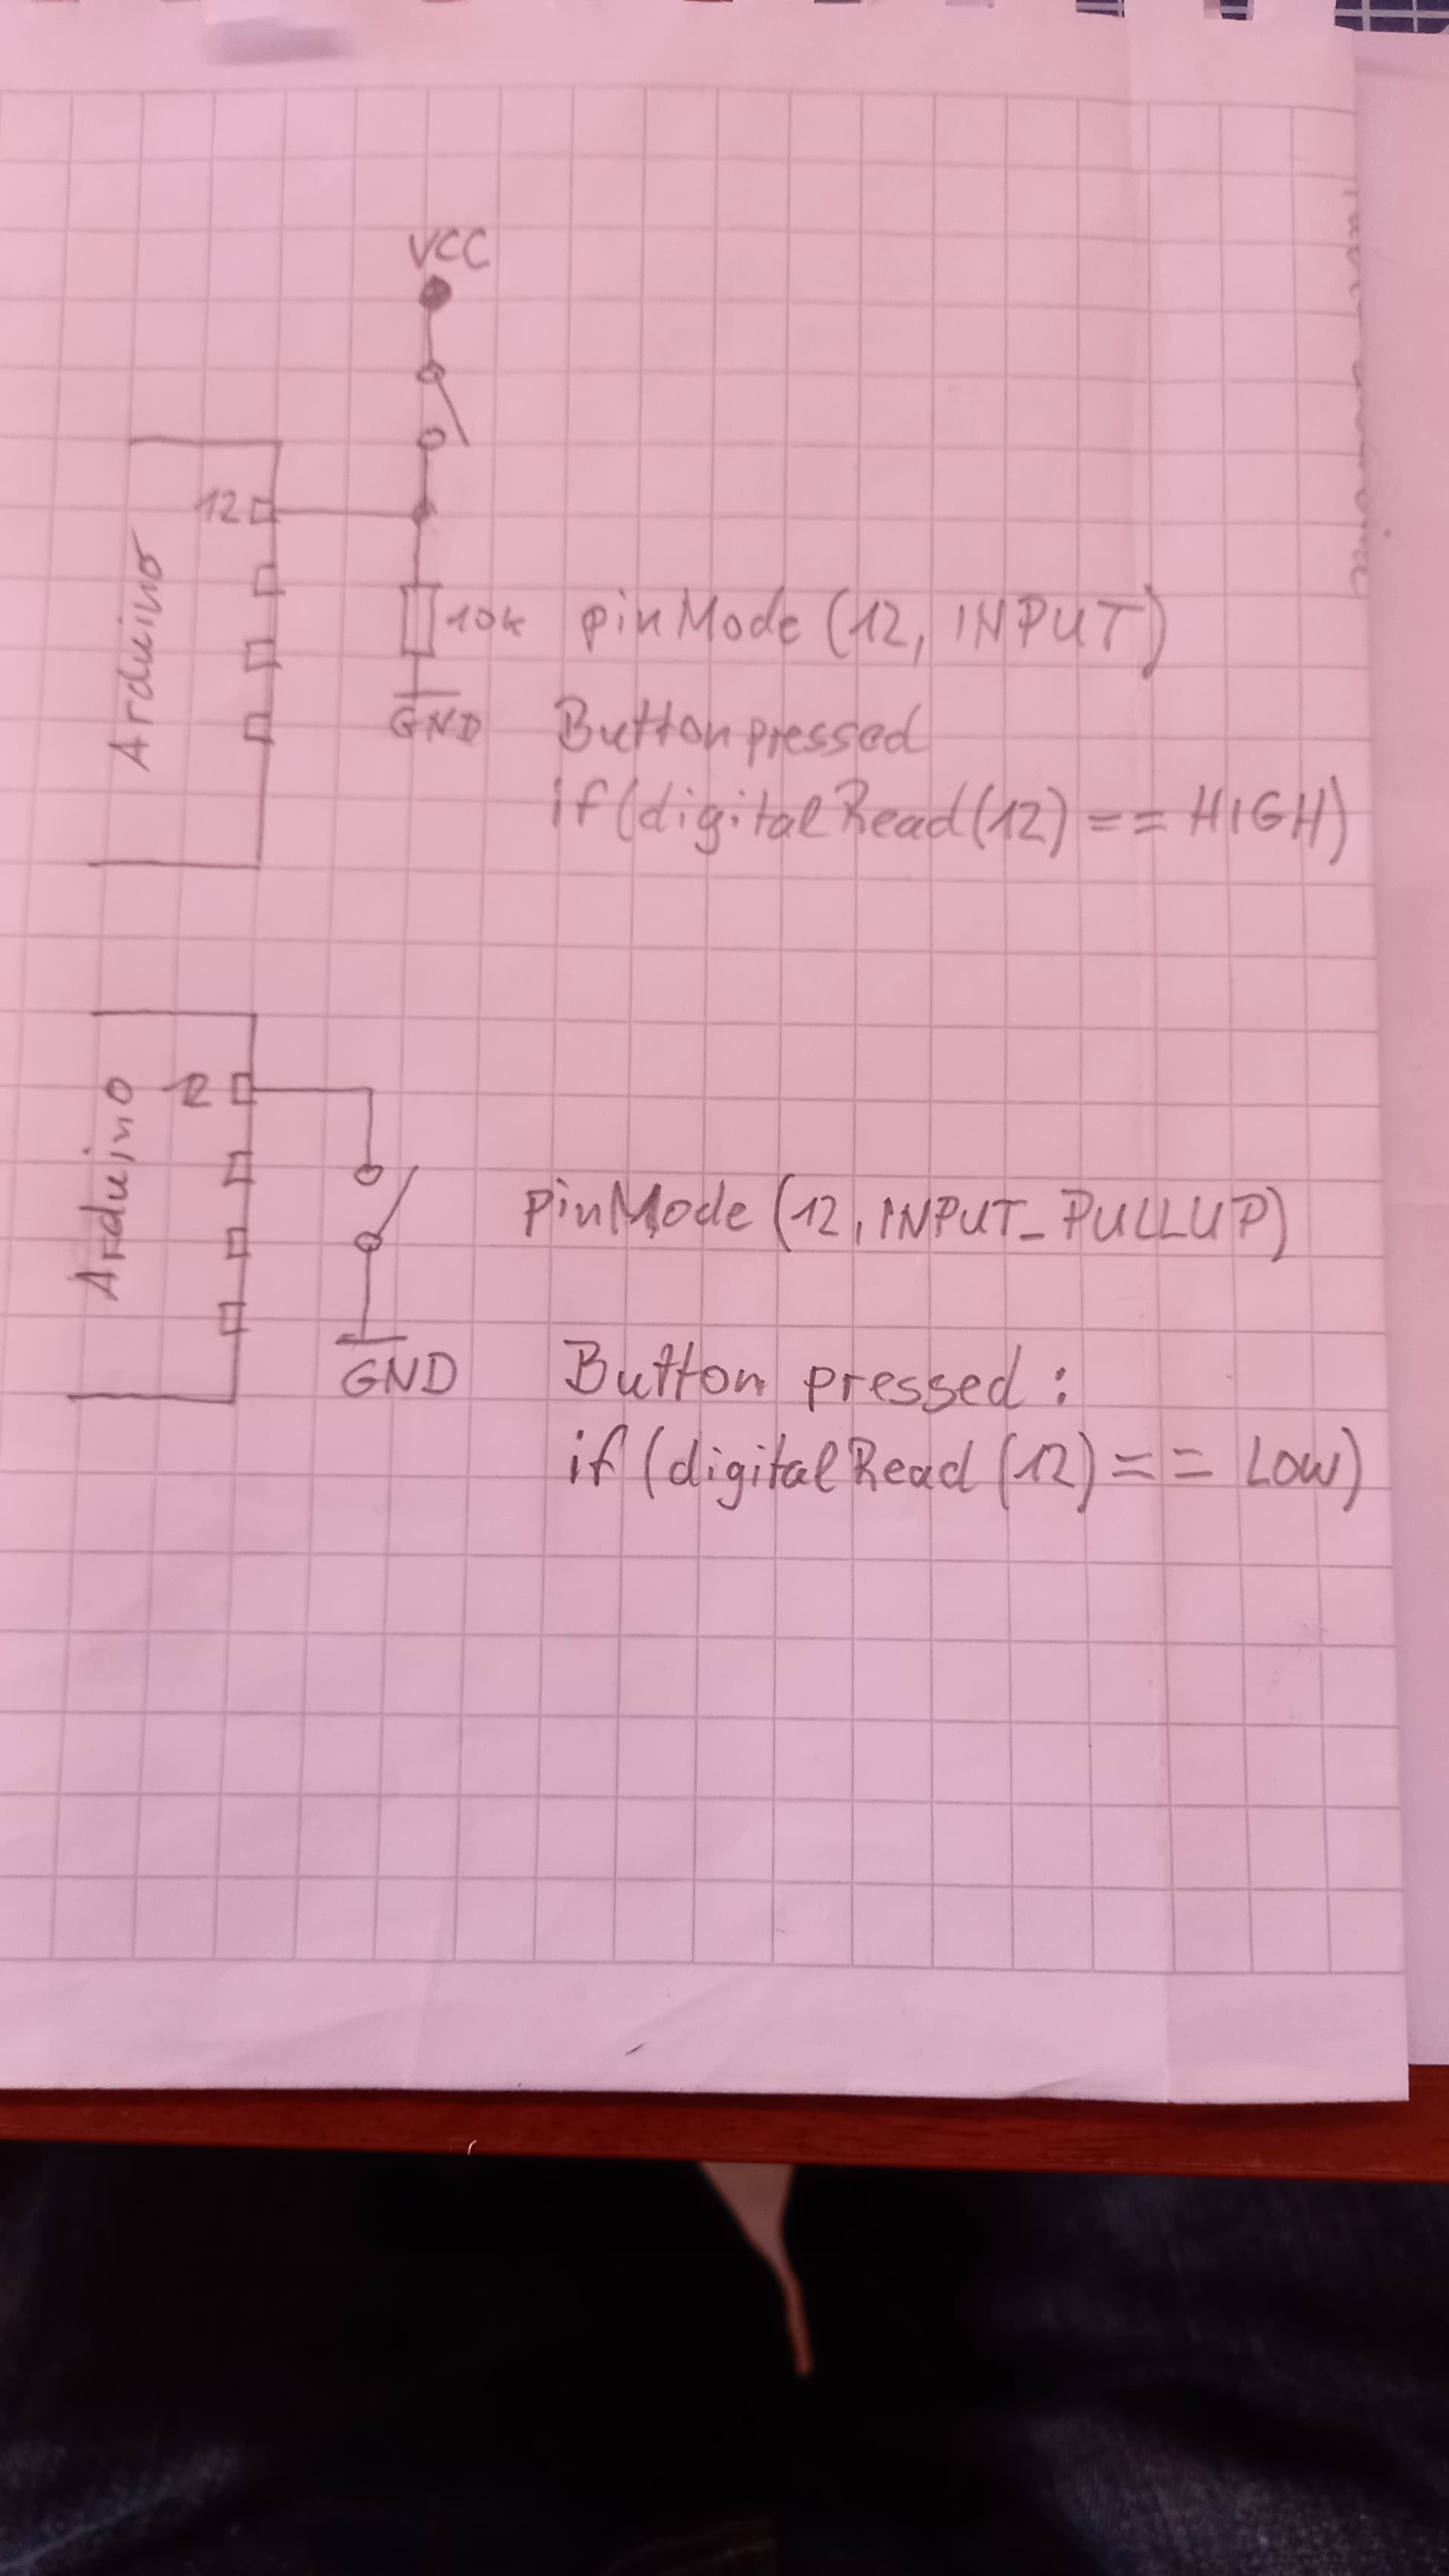 VCC
12
Arduino
10k pinMode (12, INPUT)
GND Button pressed
if (digitalRead (12) == HIGH)
12
Arduino
pinMode (12, INPUT_PULLUP)
GND Button pressed :
if (digitalRead (12) == LOW)